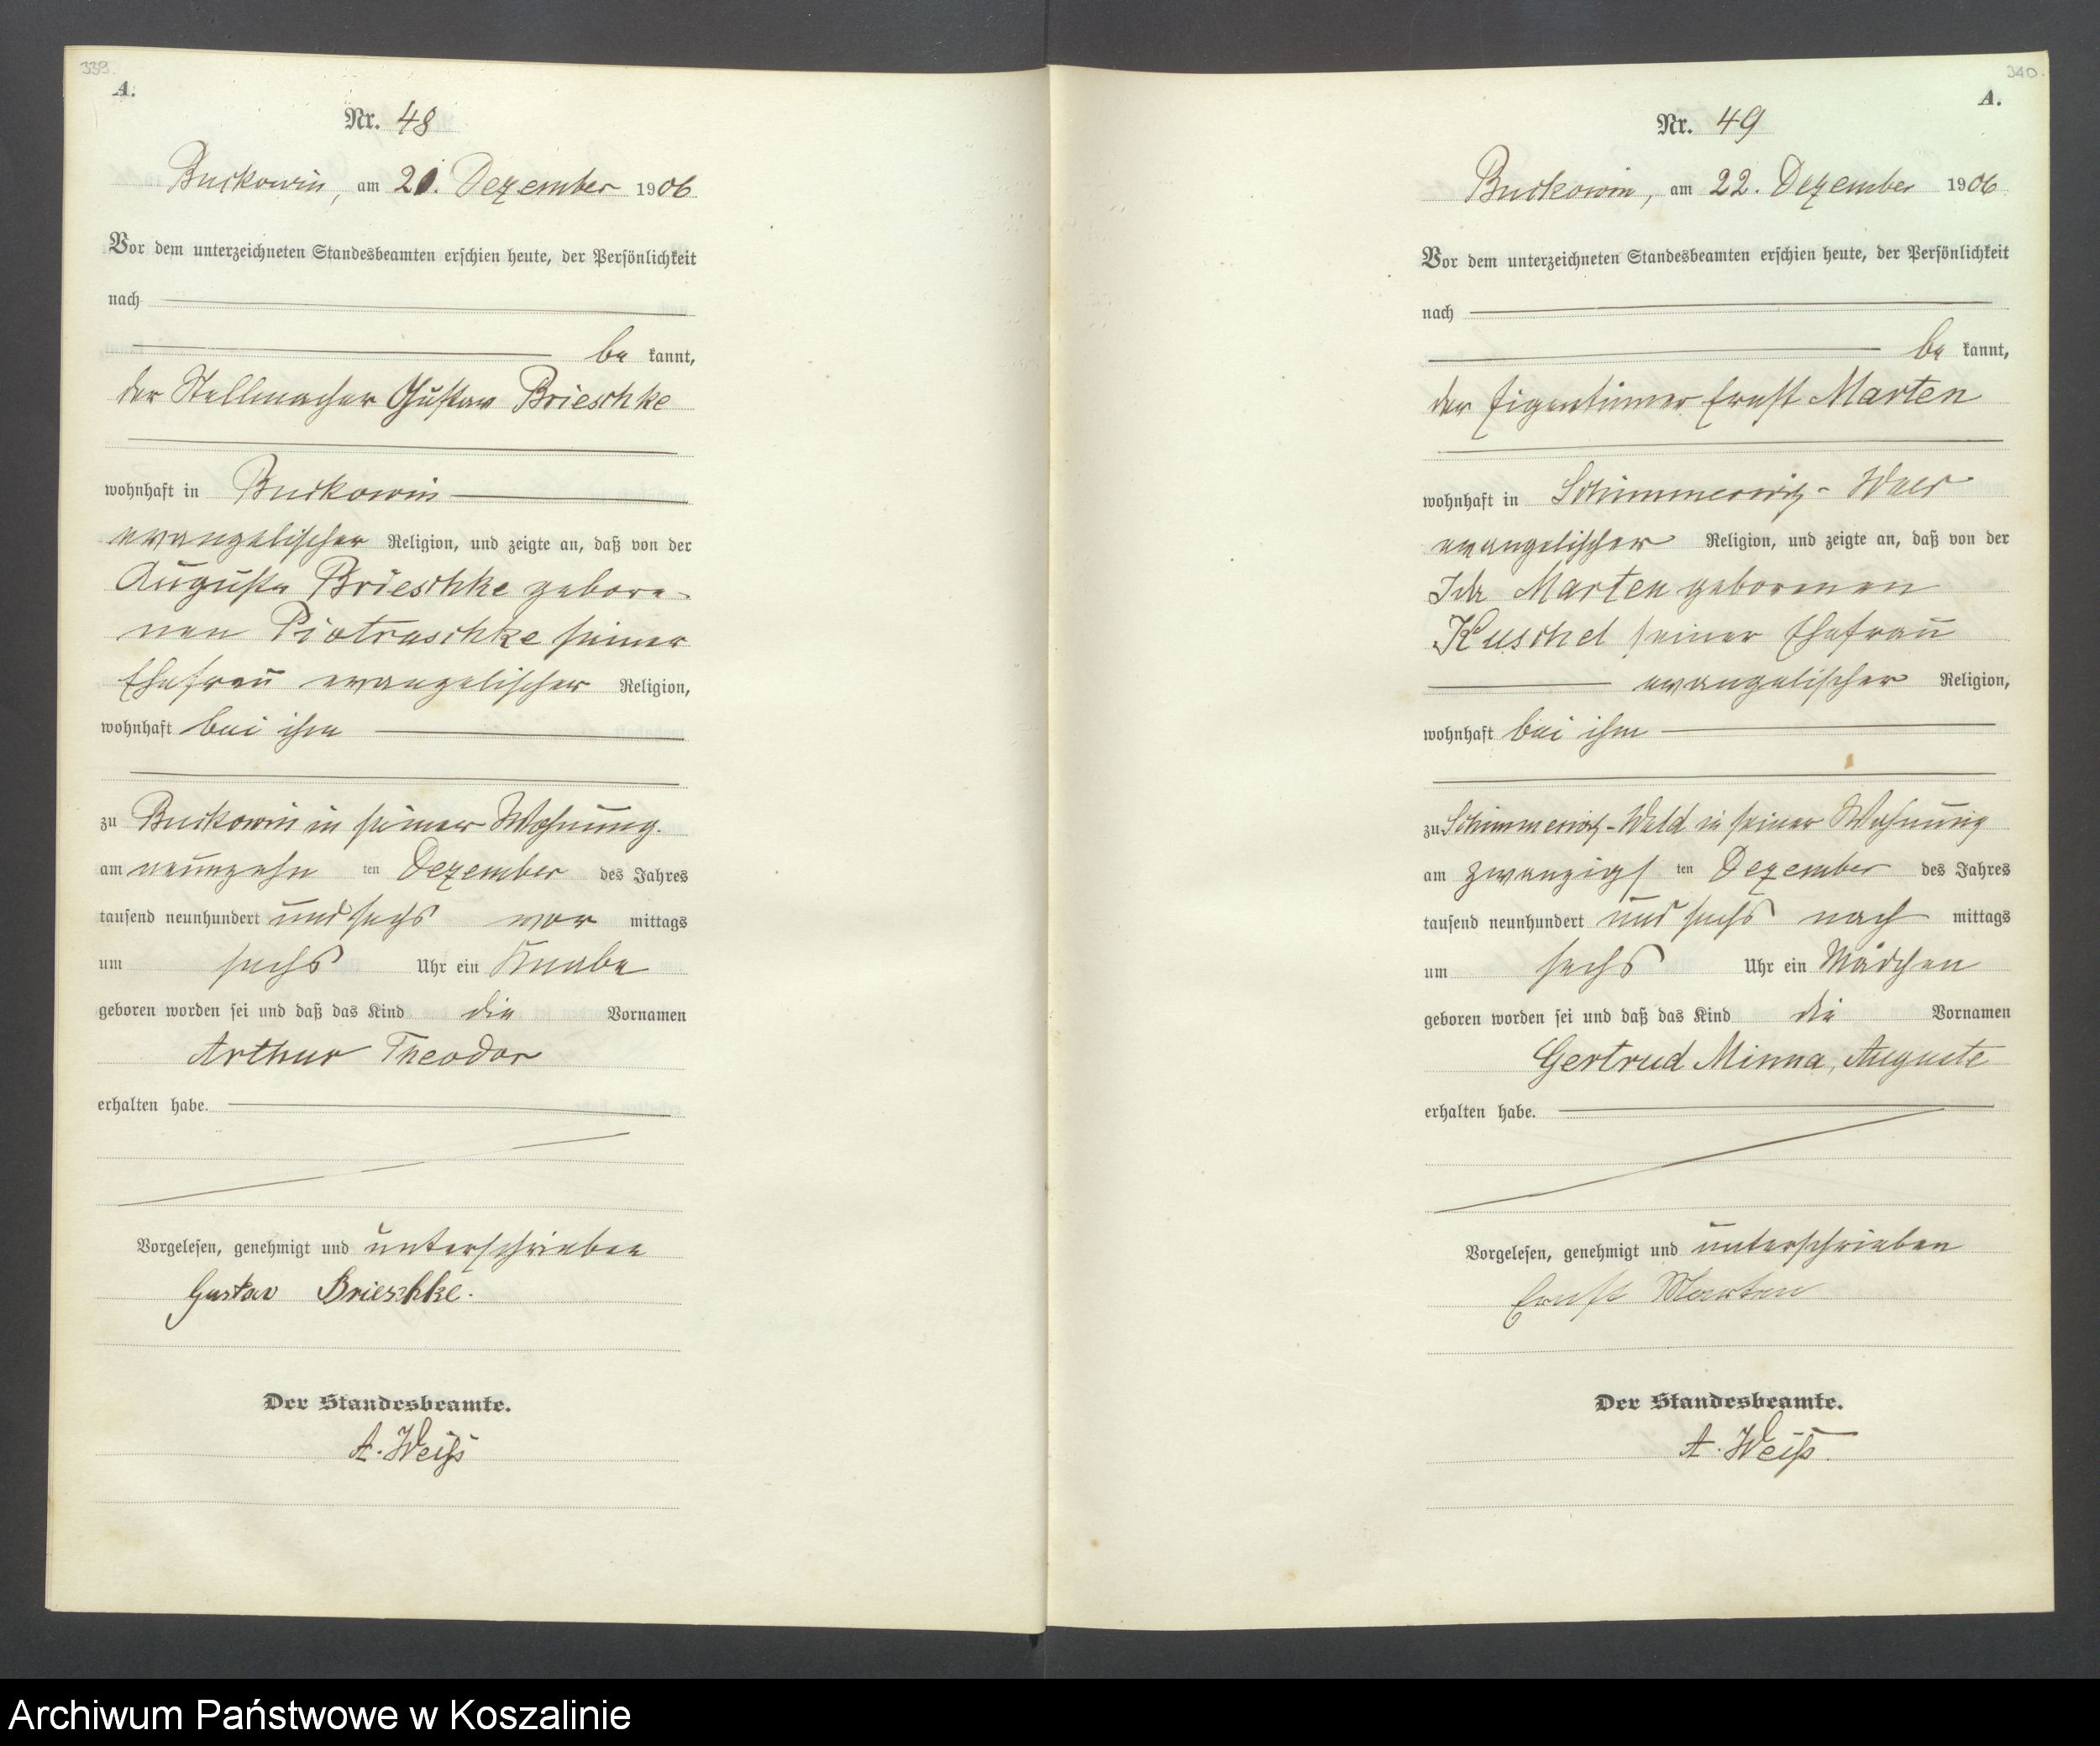 339.
A.
Nr. 48
Buckowin, am 21. Dezember 1906
Vor dem unterzeichneten Standesbeamten erschien heute, der Persönlichkeit
nach
be kannt,
der Stellmacher Gustav Brieschke
wohnhaft in Buckowin
evangelischer Religion, und zeigte an, daß von der
Auguste Brieschke gebore-
nen Piotraschke seiner
Ehefrau evangelischer Religion,
wohnhaft bei ihm
zu Buckowin in seiner Wohnung.
am neunzehn ten Dezember des Jahres
tausend neunhundert und sechs vor mittags
um sechs Uhr ein Knabe
geboren worden sei und daß das Kind die Vornamen
Arthur Theodor
erhalten habe.
Vorgelesen, genehmigt und unterschrieben
Gustav Brieschke.
Der Standesbeamte.
A. Weiß
340.
A.
Nr. 49
Buckowin, am 22. Dezember 1906
Vor dem unterzeichneten Standesbeamten erschien heute, der Persönlichkeit
nach
be kannt,
der Eigentümer Ernst Marten
wohnhaft in Schimmerwitz-
evangelischer Religion, und zeigte an, daß von der
Ida Marten geborenen
Kuschel seiner Ehefrau
evangelischer Religion,
wohnhaft bei ihm
zu Schimmerwitz-Wald in seiner Wohnung
am zwanzigs ten Dezember des Jahres
tausend neunhundert und sechs nach mittags
um sechs Uhr ein Mädchen
geboren worden sei und daß das Kind die Vornamen
Gertrud Minna, Auguste
erhalten habe.
Vorgelesen, genehmigt und unterschrieben
Ernst Marten
Der Standesbeamte.
A. Weiß.
Archiwum Państwowe w Koszalinie